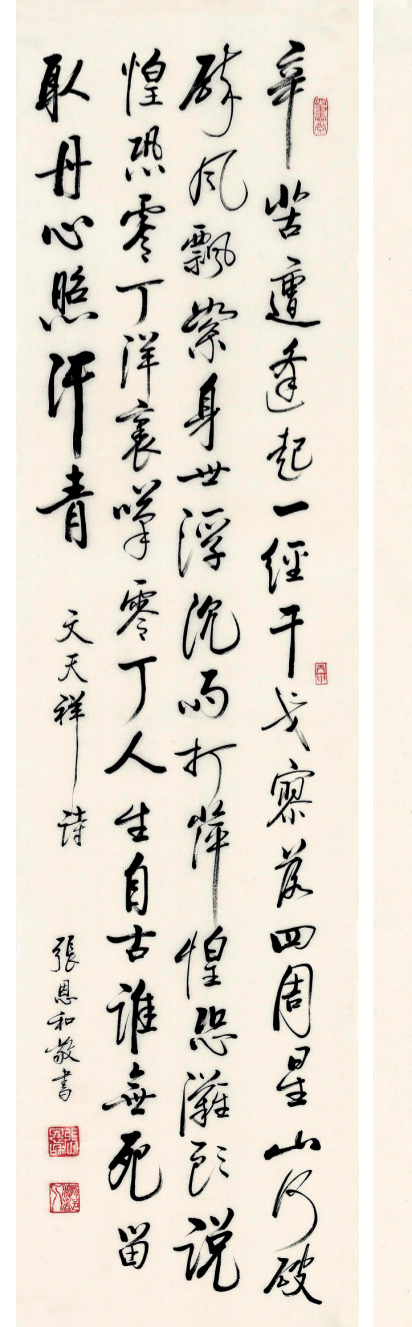 辛苦遭逢起一經干戈寥落四周星山河破
碎風飄絮身世浮沉雨打萍惶恐灘頭說
惶恐零丁洋裏嘆零丁人生自古誰無死留
取丹心照汗青 文天祥詩 張恩和敬書